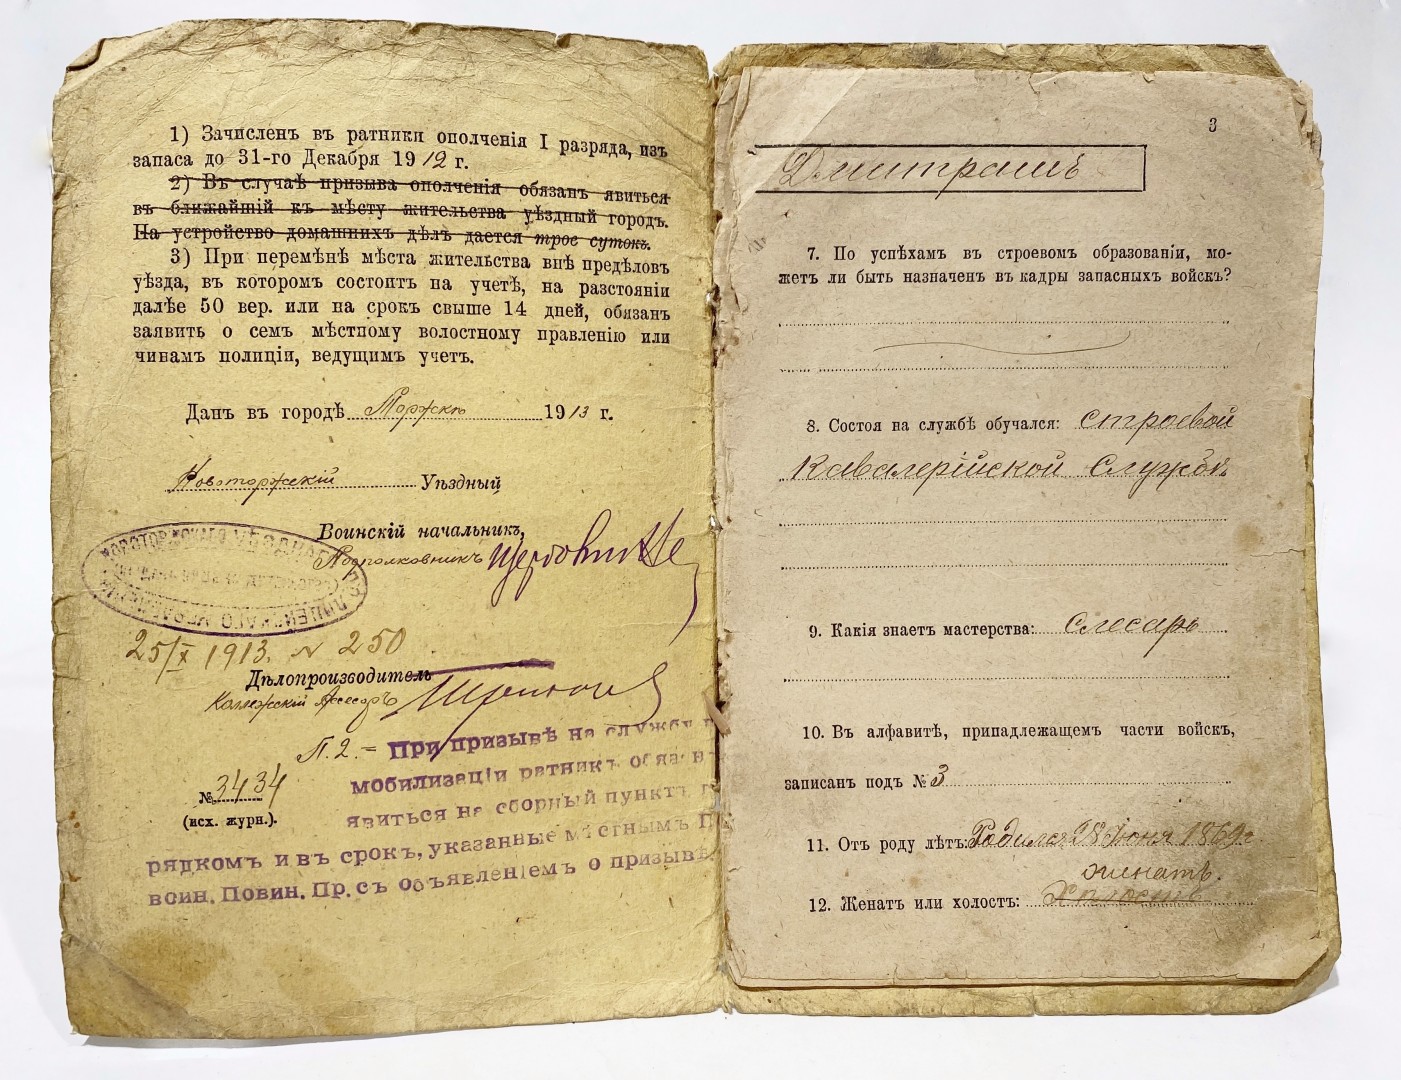 1) Зачисленъ въ ратники ополченія I разряда, изъ
запаса до 31-го Декабря 1912 г.
2) Въ случаѣ призыва ополченія обязанъ явиться
въ ближайшій къ мѣсту жительства уѣздный городъ.
На устройство домашнихъ дѣлъ дается трое сутокъ.
3) При перемѣнѣ мѣста жительства внѣ предѣловъ
уѣзда, въ которомъ состоитъ на учетѣ, на разстояніи
далѣе 50 вер. или на срокъ свыше 14 дней, обязанъ
заявить о семъ мѣстному волостному правленію или
чинамъ полиціи, ведущимъ учетъ.
Данъ въ городѣ Торжкѣ 1913 г.
Новоторжскій Уѣздный
Воинскій начальникъ,
Подполковникъ
НОВОТОРЖСКАГО УѢЗДНАГО ПОЛИЦЕЙСКАГО УПРАВЛЕНІЯ
25/X 1913. N 250
Дѣлопроизводитель
Коллежскій Асесоръ
П. 2. — При призывѣ на службу
№ 3434 мобилизаціи ратникъ обязан
(исх. журн.). явиться на сборный пунктъ
рядкомъ и въ срокъ, указанные мѣстнымъ
воин. Повин. Пр. съ объявленіемъ о призывѣ.
3
Дмитрашъ
7. По успѣхамъ въ строевомъ образованіи, мо-
жетъ ли быть назначенъ въ кадры запасныхъ войскъ?
8. Состоя на службѣ обучался: строевой
Кавалерійской службѣ
9. Какія знаетъ мастерства: слесарь
10. Въ алфавитѣ, принадлежащемъ части войскъ,
записанъ подъ № 3
11. Отъ роду лѣтъ: Родился 28 Іюня 1869 г
женатъ.
12. Женатъ или холостъ: Холостъ